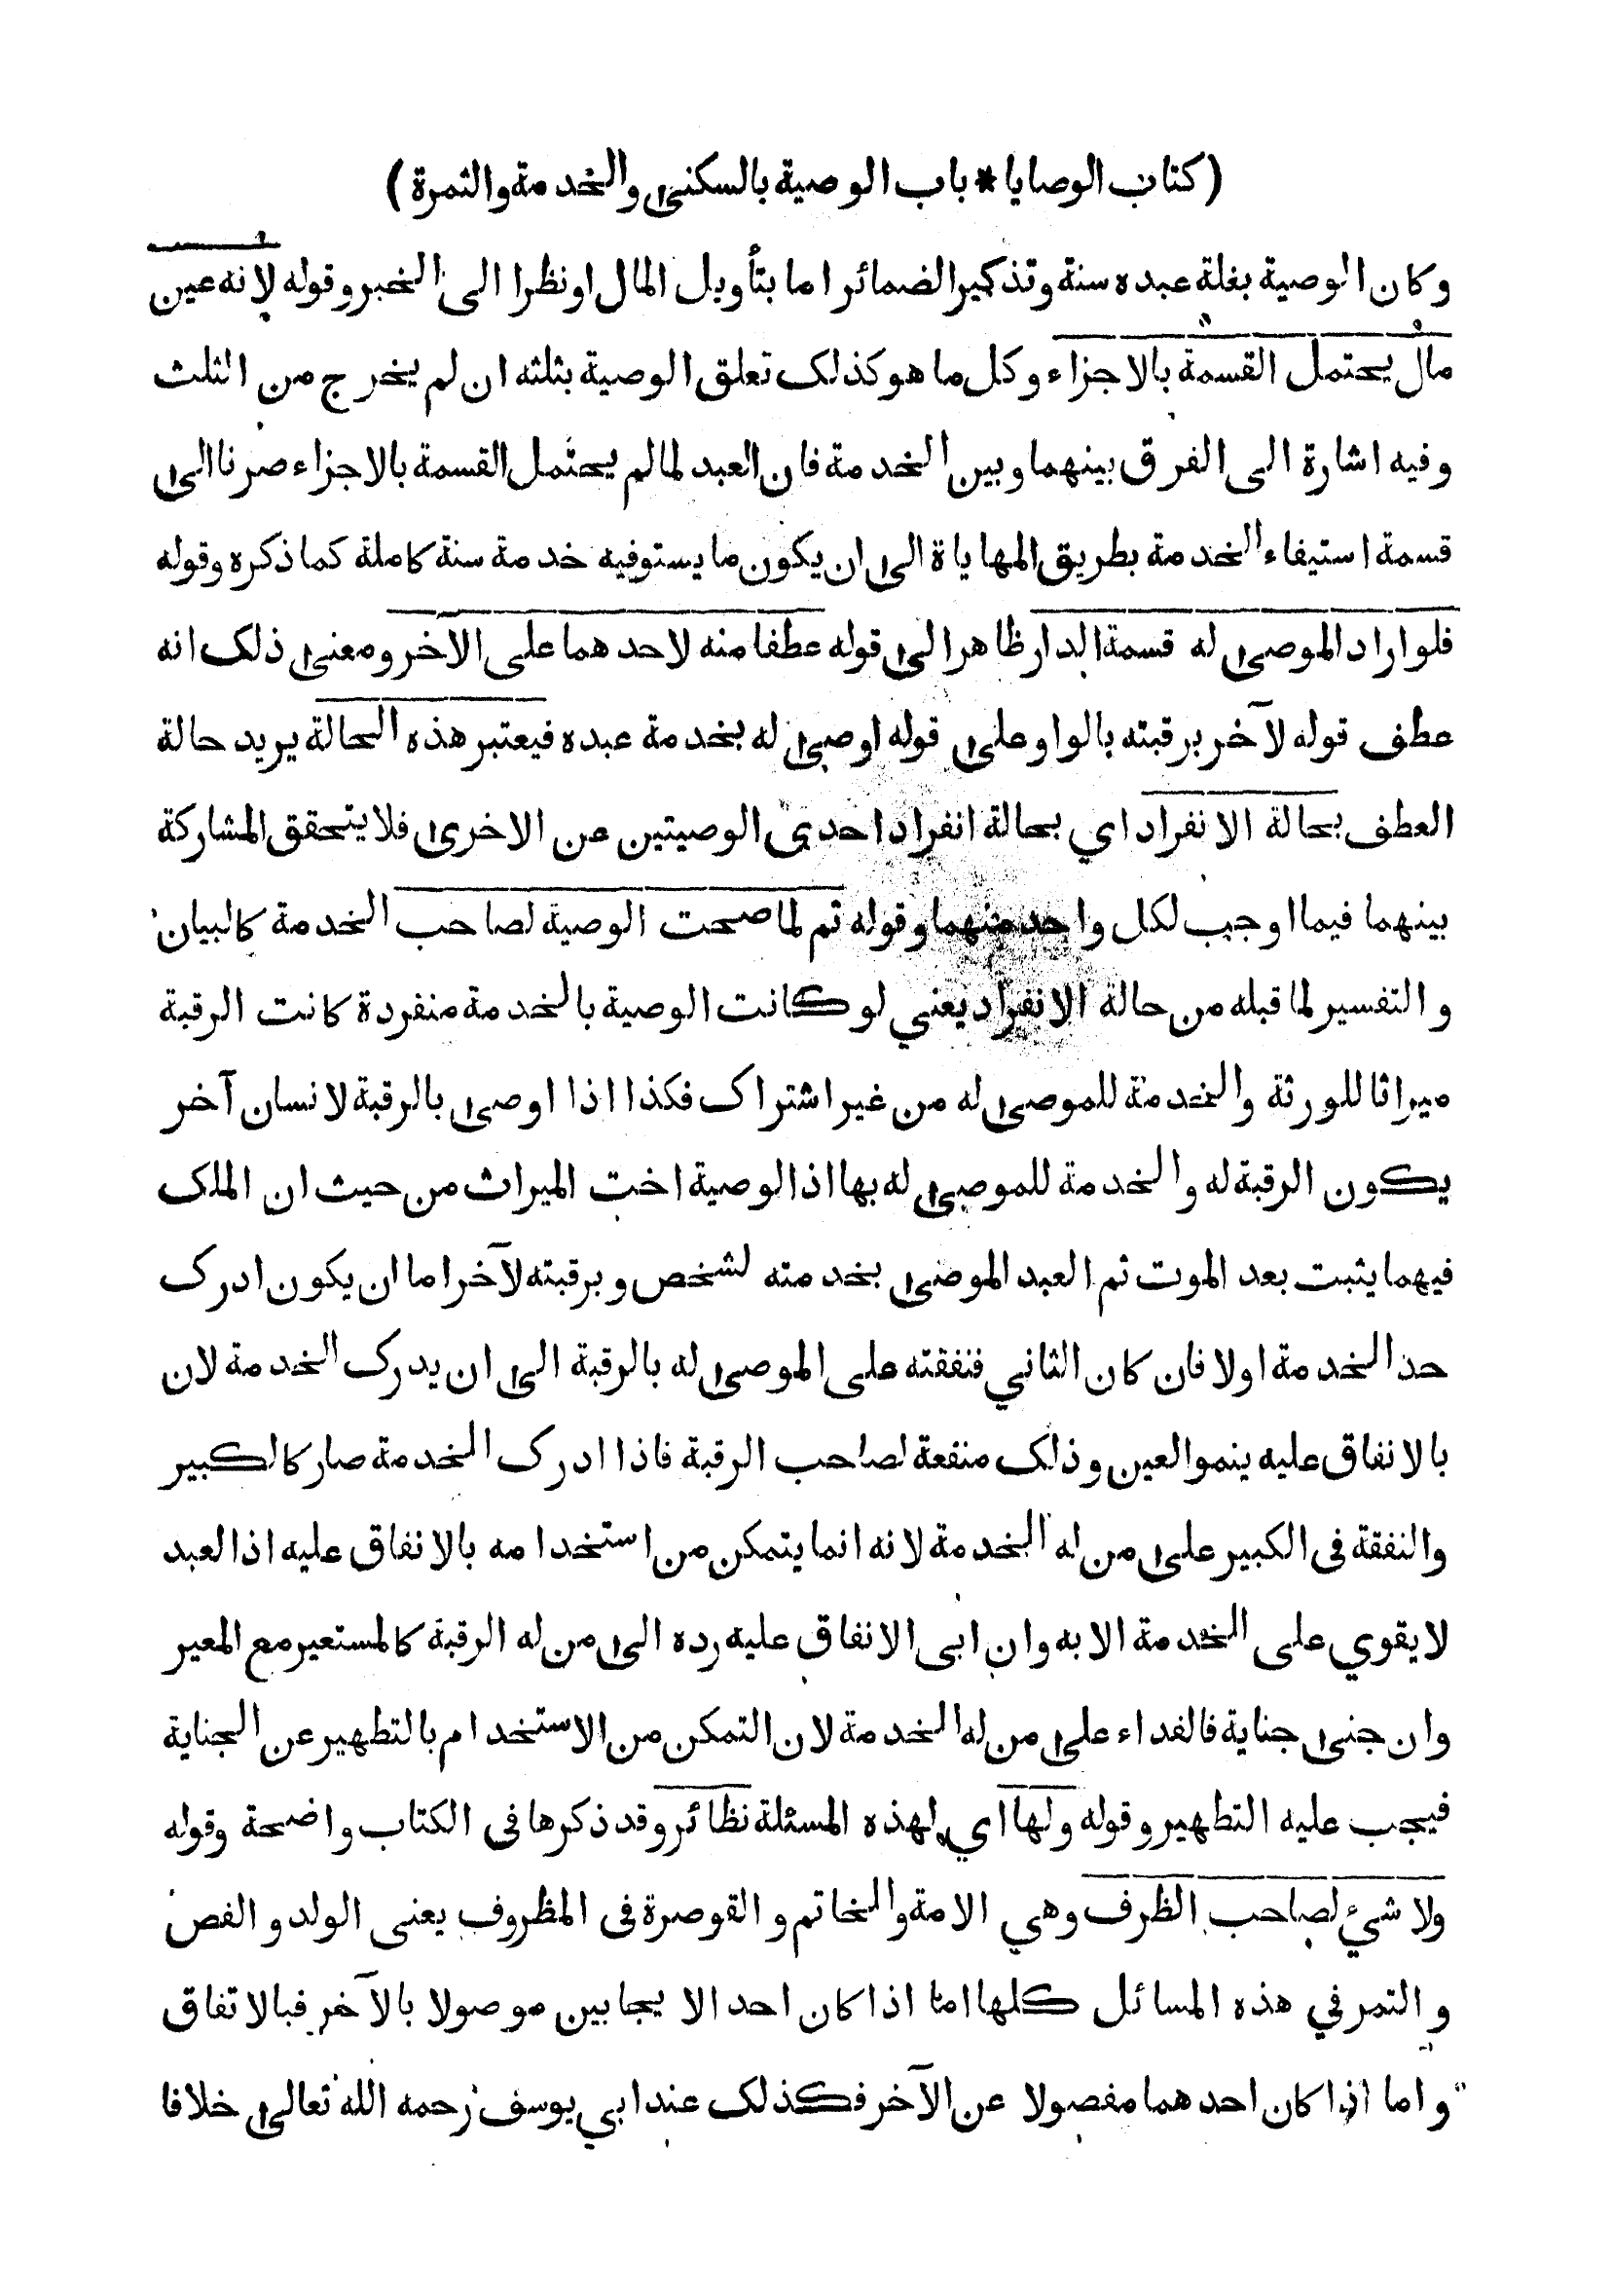 (كتاب الوصايا * باب الوصية بالسكنى والخدمة والثمرة)
وكان الوصية بغلة عبده سنة وتذكير الضمائر اما بتأويل المال او نظرا الى الخبر وقوله لانه عين
مال يحتمل القسمة بالاجزاء وكل ما هو كذلك تعلق الوصية بثلثه ان لم يخرج من الثلث
وفيه اشارة الى الفرق بينهما وبين الخدمة فان العبد لما لم يحتمل القسمة بالاجزاء صرنا الى
قسمة استيفاء الخدمة بطريق المهاياة الى ان يكون ما يستوفيه خدمة سنة كاملة كما ذكره وقوله
فلو اراد الموصى له قسمة الدار ظاهر الى قوله عطفا منه لاحدهما على الآخر ومعنى ذلك انه
عطف قوله لآخر برقبته بالواو على قوله اوصى له بخدمة عبده فيعتبر هذه الحالة يريد حالة
العطف بحالة الانفراد اي بحالة انفراد احدى الوصيتين عن الاخرى فلا يتحقق المشاركة
بينهما فيما اوجب لكل واحد منهما وقوله ثم لما صحت الوصية لصاحب الخدمة كالبيان
والتفسير لما قبله من حالة الانفراد يعني لو كانت الوصية بالخدمة منفردة كانت الرقبة
ميراثا للورثة والخدمة للموصى له من غير اشتراك فكذا اذا اوصى بالرقبة لانسان آخر
يكون الرقبة له والخدمة للموصى له بها اذ الوصية اخت الميراث من حيث ان الملك
فيهما يثبت بعد الموت ثم العبد الموصى بخدمته لشخص وبرقبته لآخر اما ان يكون ادرك
حد الخدمة اولا فان كان الثاني فنفقته على الموصى له بالرقبة الى ان يدرك الخدمة لان
بالانفاق عليه ينمو العين وذلك منفعة لصاحب الرقبة فاذا ادرك الخدمة صار كالكبير
والنفقة فى الكبير على من له الخدمة لانه انما يتمكن من استخدامه بالانفاق عليه اذ العبد
لا يقوي على الخدمة الا به وان ابى الانفاق عليه رده الى من له الرقبة كالمستعير مع المعير
وان جنى جناية فالفداء على من له الخدمة لان التمكن من الاستخدام بالتطهير عن الجناية
فيجب عليه التطهير وقوله ولها اي لهذه المسئلة نظائر وقد ذكرها فى الكتاب واضحة وقوله
ولا شيء لصاحب الظرف وهي الامة والخاتم والقوصرة فى المظروف يعنى الولد والفص
والتمر في هذه المسائل كلها اما اذا كان احد الايجابين موصولا بالآخر فبالاتفاق
واما اذا كان احدهما مفصولا عن الآخر فكذلك عند ابي يوسف رحمه الله تعالى خلافا